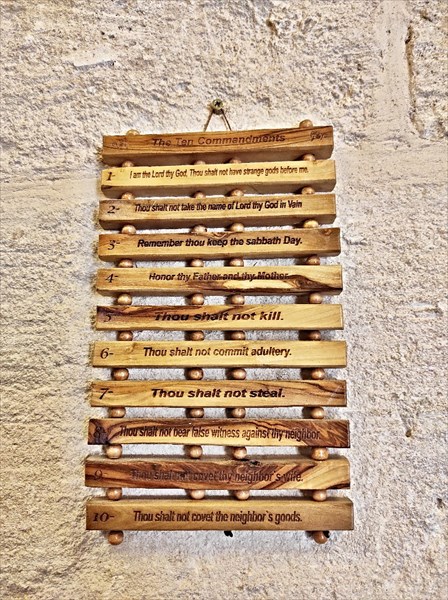 The Ten Commandments
1- I am the Lord thy God, Thou shalt not have strange gods before me.
2- Thou shalt not take the name of Lord thy God in Vain
3- Remember thou keep the sabbath Day.
4- Honor thy Father and thy Mother.
5- Thou shalt not kill.
6- Thou shalt not commit adultery.
7- Thou shalt not steal.
8- Thou shalt not bear false witness against thy neighbor.
9- Thou shalt not covet thy neighbor`s wife.
10- Thou shalt not covet the neighbor`s goods.